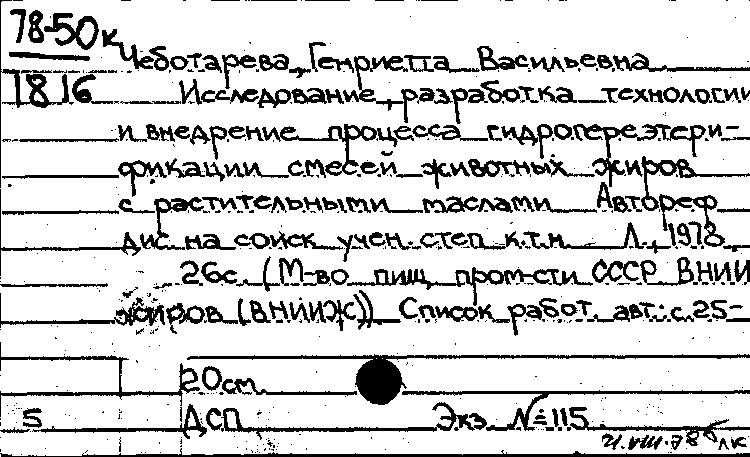 78-50к
1816
Чеботарева, Генриетта Васильевна
Исследование, разработка технологии
и внедрение процесса гидропереэтери-
фикации смесей животных жиров
с растительными маслами Автореф
дис. на соиск учен. степ к.т.н Л., 1978.
26с. (М-во пищ, пром-сти СССР ВНИИ
жиров (ВНИИЖ)) Список работ. авт.: с.25-
20см.
5 ДСП Экз. №115